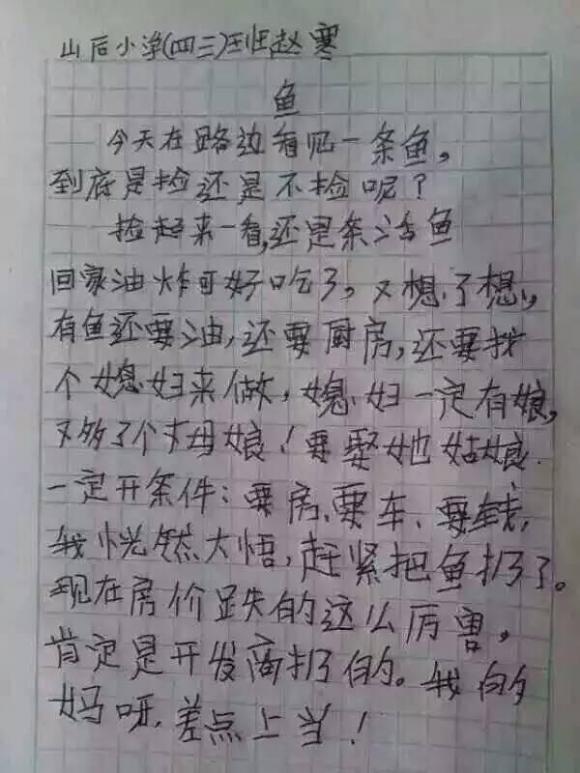 山后小学(四三)班赵寒
鱼
今天在路边看见一条鱼,
到底是捡还是不捡呢?
捡起来一看,还是条活鱼
回家油炸可好吃了,又想了想,
有鱼还要油,还要厨房,还要找
个媳妇来做,媳妇一定有娘,
又多了个丈母娘!要娶她姑娘
一定开条件:要房、要车、要钱,
我恍然大悟,赶紧把鱼扔了。
现在房价跌的这么厉害,
肯定是开发商扔的。我的
妈呀,差点上当!